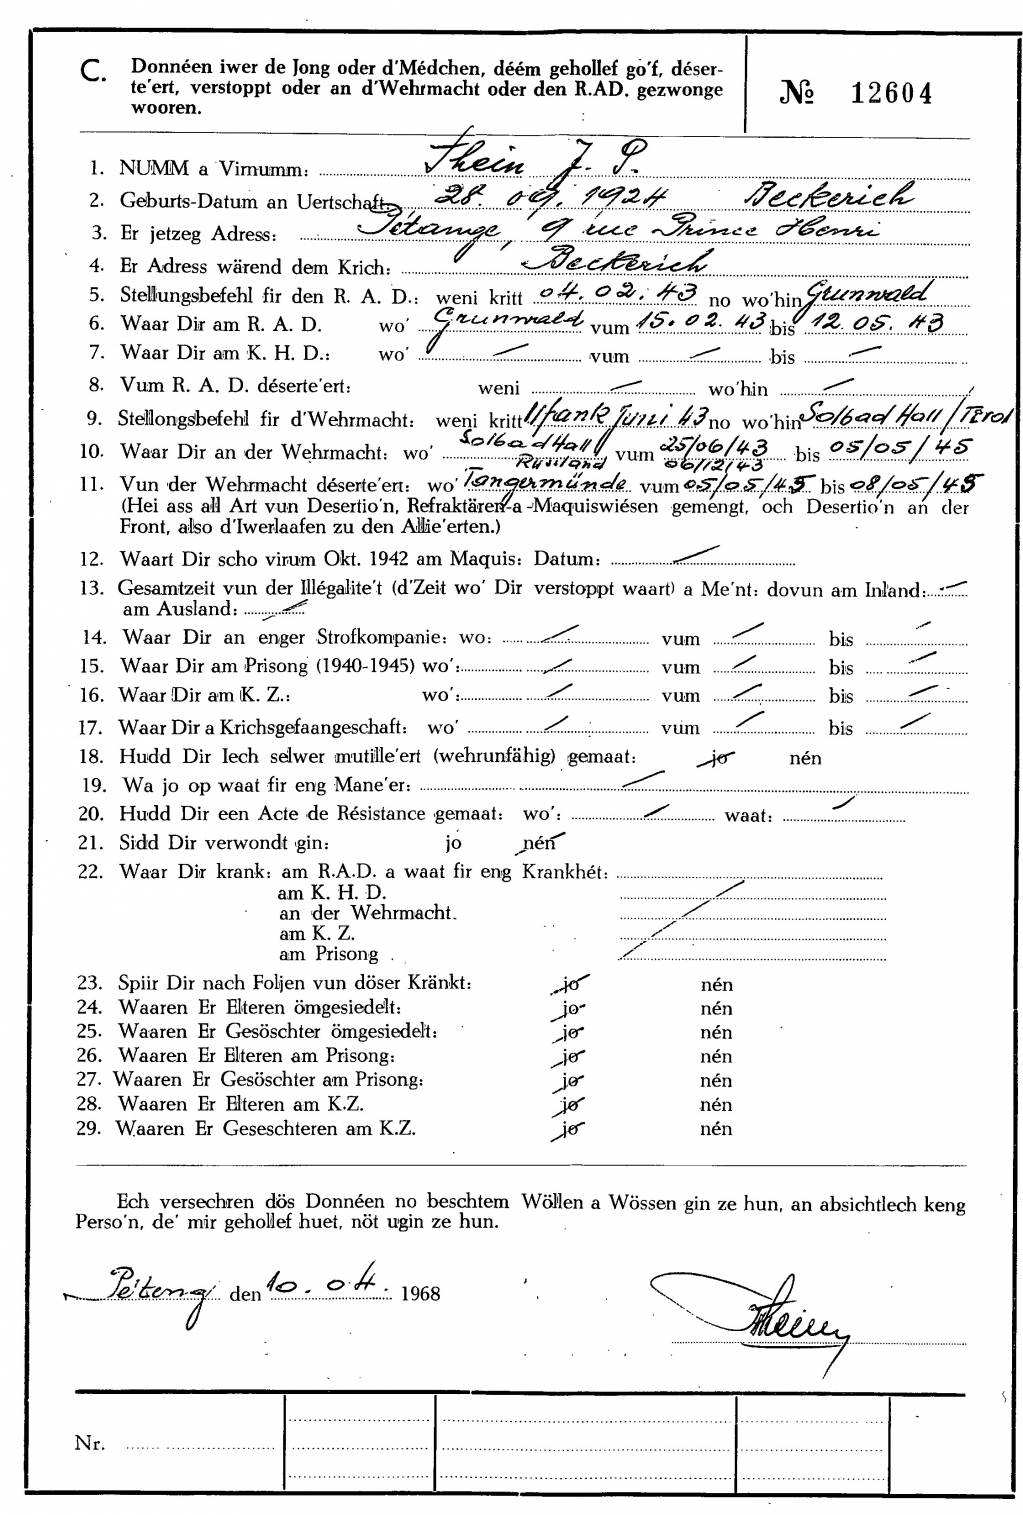 C. Donnéen iwer de Jong oder d'Médchen, déém gehollef go'f, déser-
te'ert, verstoppt oder an d'Wehrmacht oder den R.AD. gezwonge
wooren.
№ 12604
1. NUMM a Virnumm: Thein J. P.
2. Geburts-Datum an Uertschaft: 28. 09. 1924 Beckerich
3. Er jetzeg Adress: Pétange, 9 rue Prince Henri
4. Er Adress wärend dem Krich: Beckerich
5. Stellungsbefehl fir den R. A. D.: weni kritt 04. 02. 43 no wo'hin Grunwald
6. Waar Dir am R. A. D. wo' Grunwald vum 15. 02. 43 bis 12. 05. 43
7. Waar Dir am K. H. D.: wo' — vum — bis —
8. Vum R. A. D. déserte'ert: weni — wo'hin —
9. Stellongsbefehl fir d'Wehrmacht: weni kritt Ufank Juni 43 no wo'hin Solbad Hall/Tirol
10. Waar Dir an der Wehrmacht: wo' Solbad Hall vum 25/06/43 bis 05/05/45
Russland 06/12/43
11. Vun der Wehrmacht déserte'ert: wo' Tangermünde vum 05/05/45 bis 08/05/45
(Hei ass all Art vun Desertio'n, Refraktären a Maquiswiésen gemengt, och Desertio'n an der
Front, also d'Iwerlaafen zu den Allie'erten.)
12. Waart Dir scho virum Okt. 1942 am Maquis: Datum: —
13. Gesamtzeit vun der Illégalite't (d'Zeit wo' Dir verstoppt waart) a Me'nt: dovun am Inland: —
am Ausland: —
14. Waar Dir an enger Strofkompanie: wo: — vum — bis —
15. Waar Dir am Prisong (1940-1945) wo': — vum — bis —
16. Waar Dir am K. Z.: wo': — vum — bis —
17. Waar Dir a Krichsgefaangeschaft: wo' — vum — bis —
18. Hudd Dir Iech selwer mutille'ert (wehrunfähig) gemaat: jo nén
19. Wa jo op waat fir eng Mane'er: —
20. Hudd Dir een Acte de Résistance gemaat: wo': — waat: —
21. Sidd Dir verwondt gin: jo nén
22. Waar Dir krank: am R.A.D. a waat fir eng Krankhét:
am K. H. D.
an der Wehrmacht.
am K. Z.
am Prisong
23. Spiir Dir nach Foljen vun döser Kränkt: jo nén
24. Waaren Er Elteren ömgesiedelt: jo nén
25. Waaren Er Gesöschter ömgesiedelt: jo nén
26. Waaren Er Elteren am Prisong: jo nén
27. Waaren Er Gesöschter am Prisong: jo nén
28. Waaren Er Elteren am K.Z. jo nén
29. Waaren Er Geseschteren am K.Z. jo nén
Ech versechren dös Donnéen no beschtem Wöllen a Wössen gin ze hun, an absichtlech keng
Perso'n, de' mir gehollef huet, nöt ugin ze hun.
Péiteng den 10. 04. 1968
Thein
Nr.